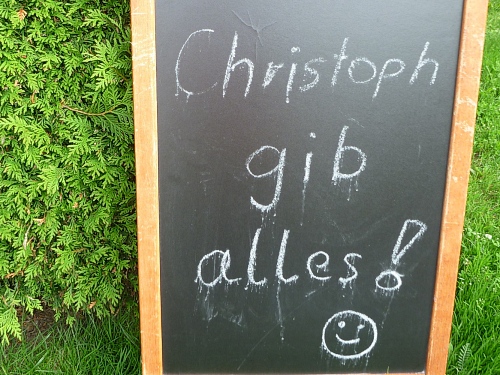 Christoph
gib
alles!